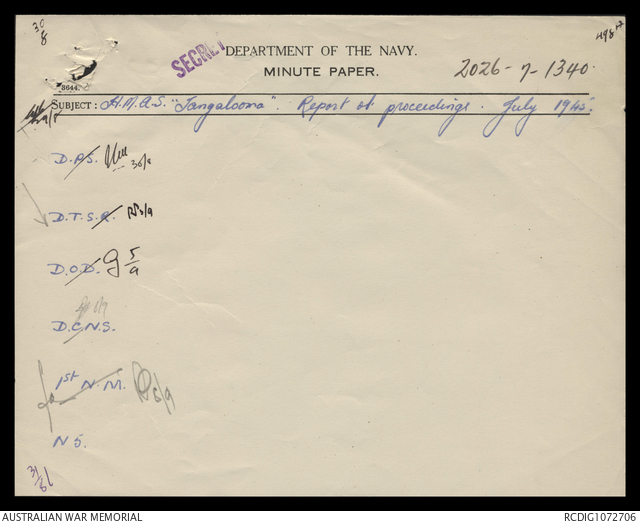 30
8
498A
SECRET
DEPARTMENT OF THE NAVY.
MINUTE PAPER.
2026-7-1340.
3644.
SUBJECT: H.M.A.S. "Tangalooma". Report of proceedings. July 1945.
D.P.S. 30/8
D.T.S.R. 3/9
D.O.D. G 5/9
D.C.N.S.
1st N.M. 6/9
N 5.
31/8
AUSTRALIAN WAR MEMORIAL
RCDIG1072706